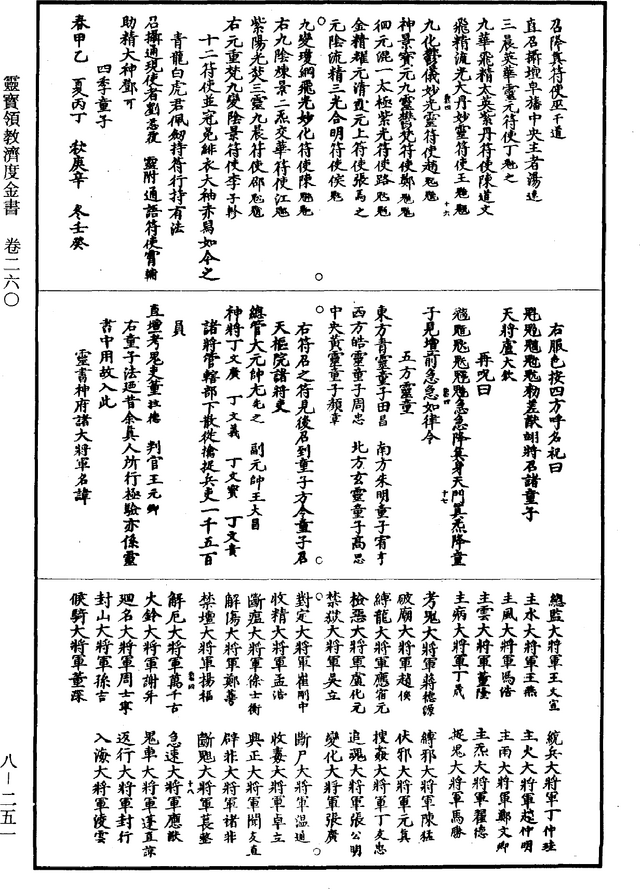 召降真符使巫千道
直召攝壇阜旛中央主者湯遠
三晨英華靈元符使丁魁之
九華飛精太英紫丹符使陳道文
飛精流光大丹妙靈符使王
九化鬱儀妙光雲符使趙
神景寶元九靈鬱梵符使鄭
徊元混一太極紫光符使路
金精耀元清真元上符使張焉之
元陰流精三光合明符使侯
九變瓊綱飛光妙化符使陳
右九陰煉景二炁交華符使江
紫陽光焚三靈九晨符使邵
右元重梵九變陰景符使李子
十二符使並冠兔緋衣大袖亦寫如令之
青龍白虎君佩劒持符行持有法
召攝通現使者劉忠 靈附通語符使霄
助精大神鄧可
四季童子
春甲乙 夏丙丁 秋庚辛 冬壬癸
右服色按四方呼名祝曰
勑差猷 將召諸童子
天將盧大欽
再呪曰
急急降真身天門真炁降童
子見壇前急急如律令
五方靈童
東方青靈童子田昌 南方朱明童子宥于
西方皓靈童子周忠 北方玄靈童子高忠
中央黃靈童子顏章
右符召之符見後召到童子方令童子召
天樞院諸將吏
總管大元帥尤先之 副元帥王大昌
神將丁文廣 丁文義 丁文實 丁文貴
諸將管轄部下散從擒捉兵吏一千五百
員
直壇考鬼吏董 判官王元卿
右童子法迺昔余真人所行極驗亦係靈
書中用故入此
靈書神府諸大將軍名諱
總監大將軍王文宣 統兵大將軍丁仲
主水大將軍王燕 主火大將軍趙仲明
主風大將軍馮浩 主雨大將軍鄭文卿
主雲大將軍董隆 主炁大將軍翟德
主病大將軍丁茂 捉鬼大將軍馬勝
考鬼大將軍蔣德源 縛邪大將軍陳猛
破廟大將軍趙侯 伏邪大將軍元真
縛龍大將軍應宿元 搜姦大將軍丁友忠
檢惡大將軍盧化元 追魂大將軍張公明
禁獄大將軍吳立 變化大將軍張廣
對定大將軍崔剛中 斷尸大將軍溫道
收精大將軍孟浩 收毒大將軍卓立
斷瘟大將軍徐士衡 興正大將軍聞文直
解傷大將軍鄭菩 辟非大將軍諸非
禁壇大將軍楊福 斷魁大將軍萇
解厄大將軍萬千古 急速大將軍應猷
火鈴大將軍謝 鬼車大將軍蓬直諒
廻名大將軍周士寧 返行大將軍封行
封山大將軍孫吉 入海大將軍淩雲
候騎大將軍董琛
靈寶領教濟度金書 卷二六〇
八—二五一